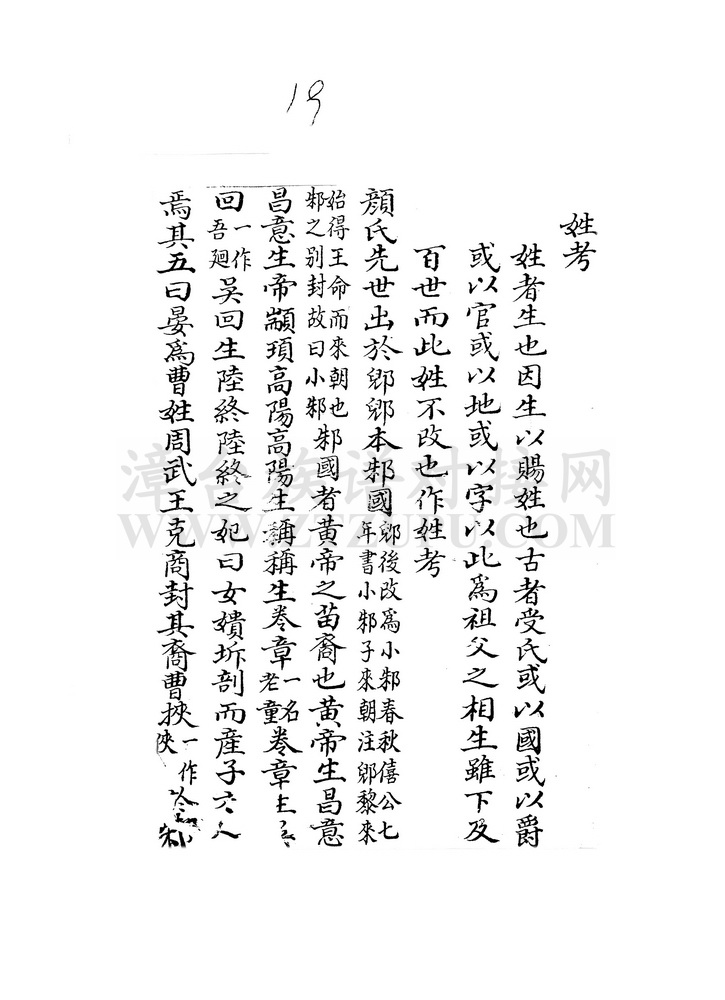 19
姓考
姓者生也因生以賜姓也古者受氏或以國或以爵
或以官或以地或以字以此為祖父之相生雖下及
百世而此姓不改也作姓考
顏氏先世出於郳郳本邾國郳後改為小邾春秋僖公七年書小邾子來朝注郳黎來
始得王命而來朝也邾之別封故曰小邾邾國者黃帝之苗裔也黃帝生昌意
昌意生帝顓頊高陽高陽生稱稱生卷章一名老童卷章生
回一作吾廻吳回生陸終陸終之妃曰女嬇坼剖而產子六人
焉其五曰晏為曹姓周武王克商封其裔曹挾一作俠 邾
漳台族谱对接网
WWW.ZTZUPU.COM